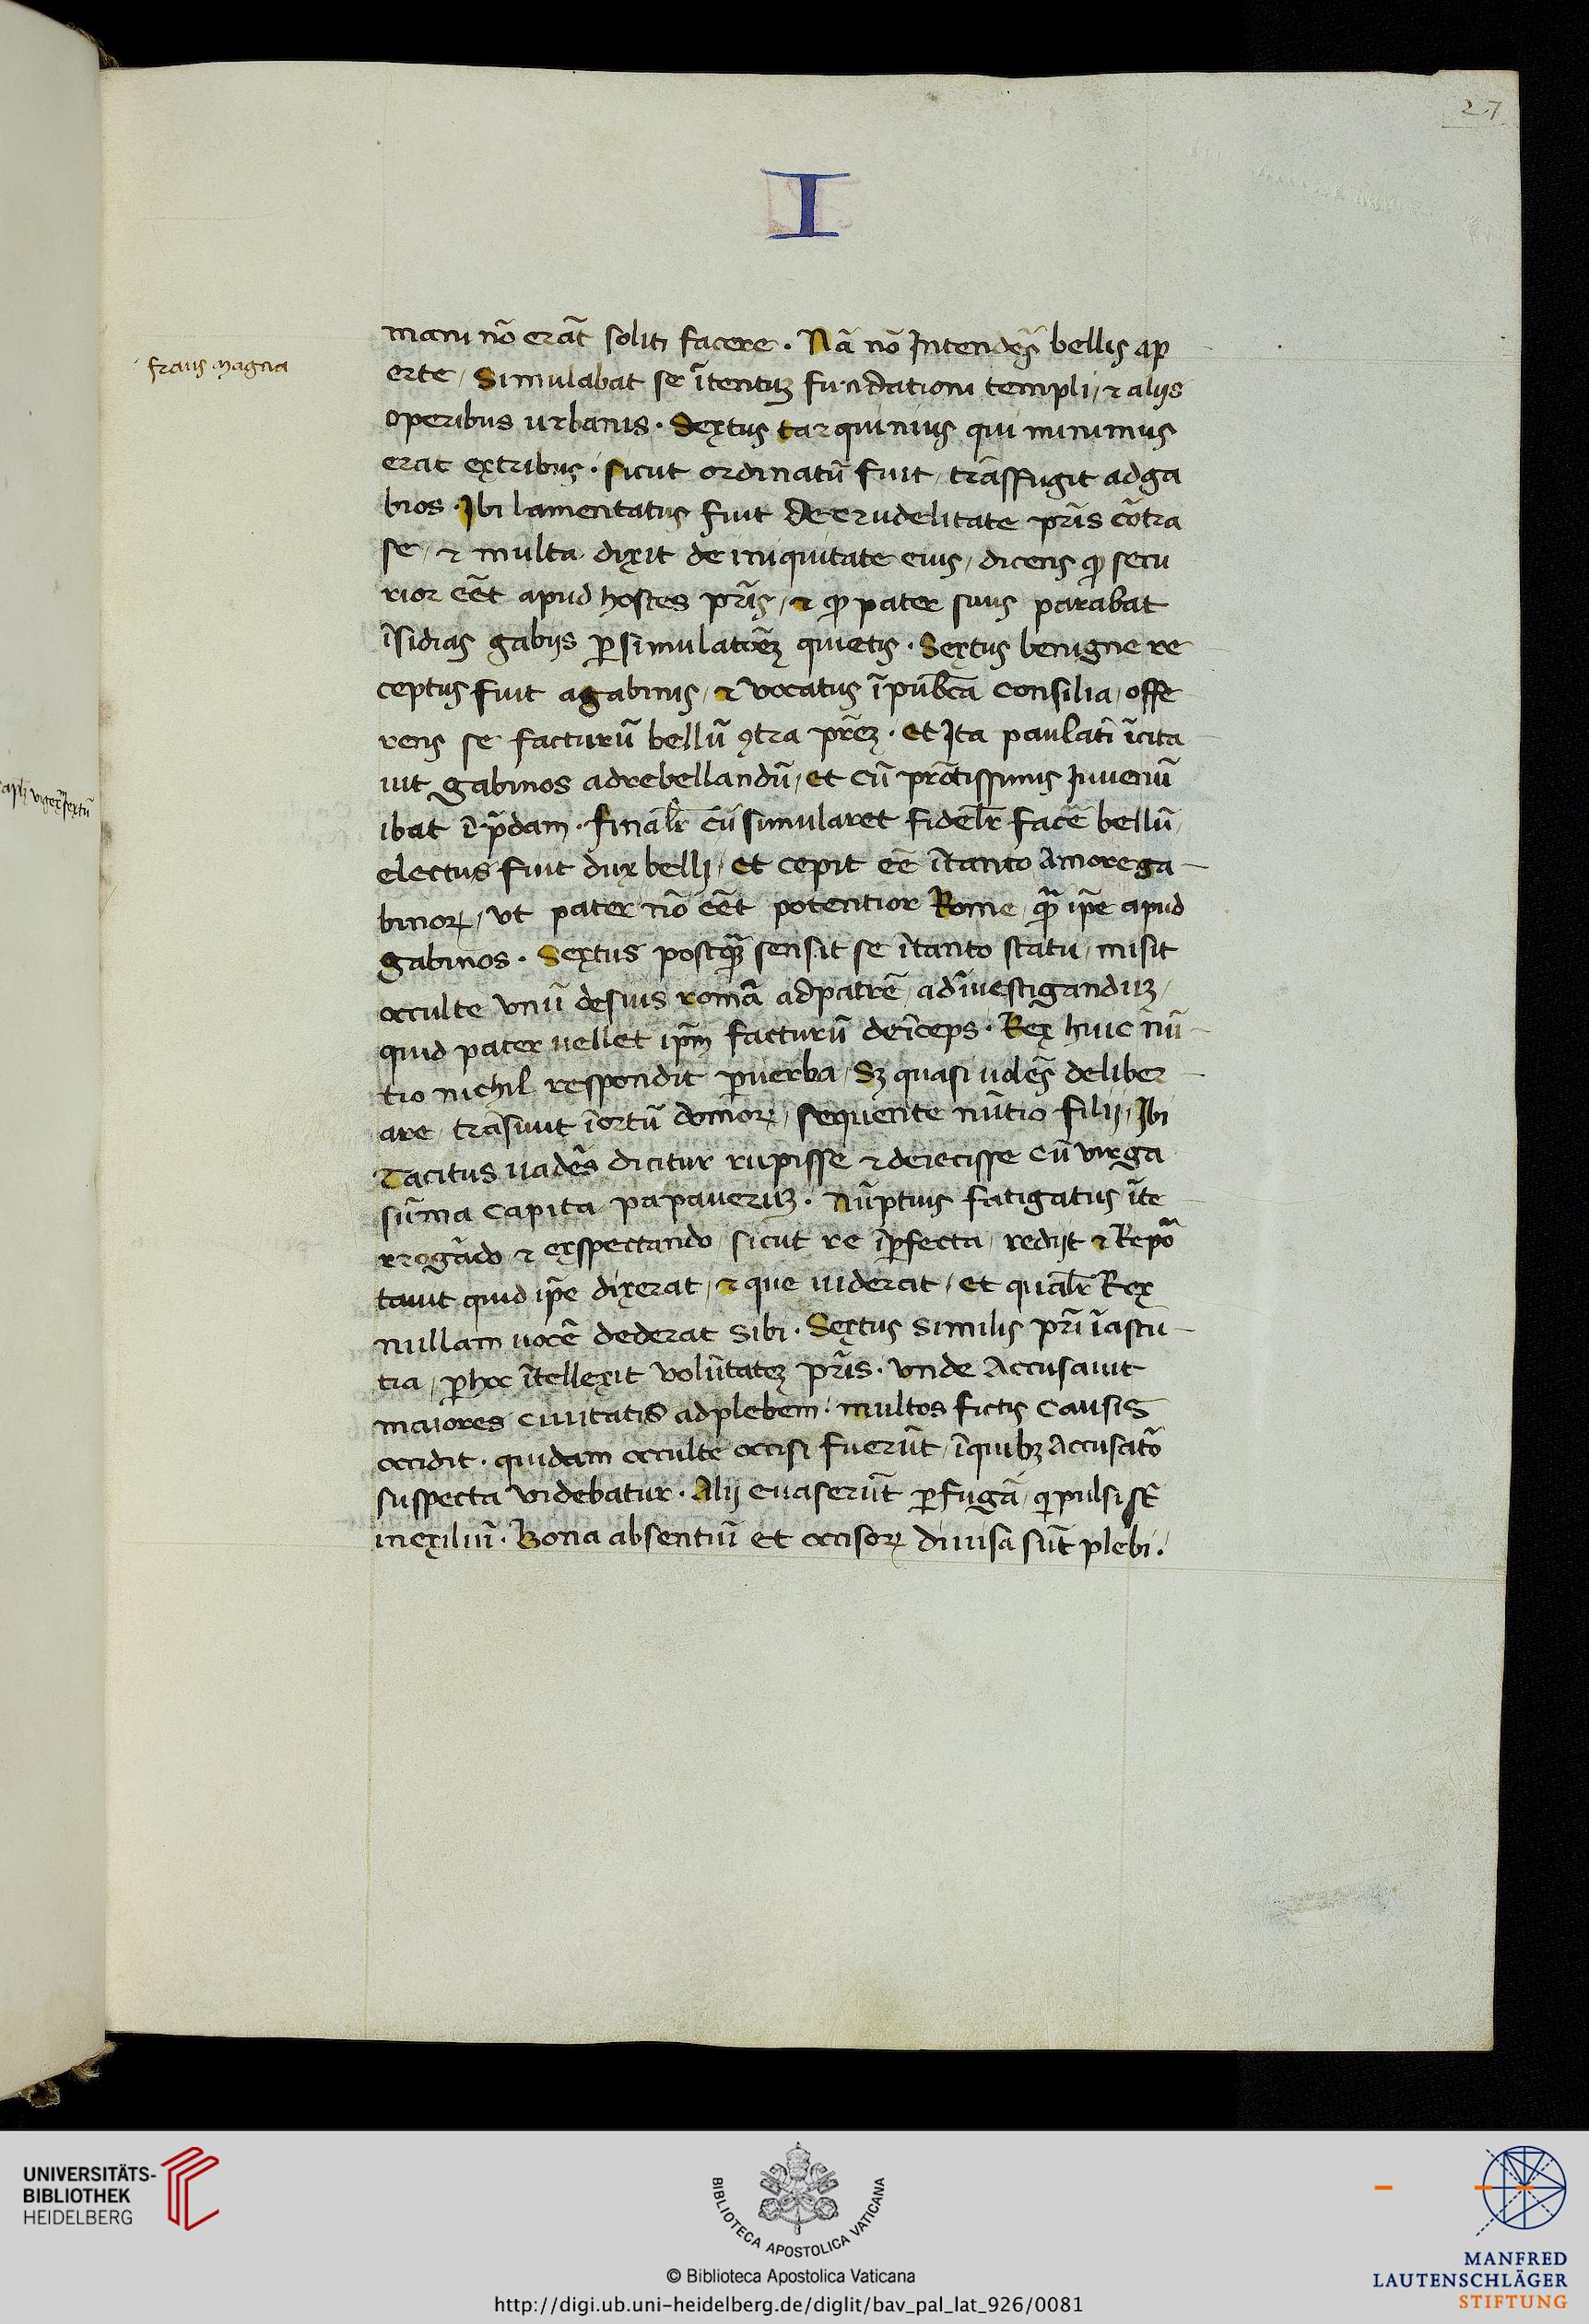 27
I
mani nō erāt soliti facere. Nā nō Intendēs bellis ap
fraus magna
erte, Simulabat se ītentuȝ fundationi templi, ⁊ alijs
operibus urbanis. Sextus tarquinius qui minimus
erat extribus. sicut ordinatū fuit, trāsfugit adga
bios. Ibi lamentatus fuit decrudelitate pr̄is cōtra
se, ⁊ multa dixit de iniquitate eius, dicens ꝙ secu
rior eēt apud hostes pr̄is, ⁊ ꝙ pater suus parabat
īsidias gabijs ꝑsimulatōeȝ quietis. Sextus benigne re
ceptus fuit agabinis, ⁊ vocatus īpublica consilia, offe
rens se facturū bellū ꝯtra pr̄eȝ. et Ita paulatī īcita
uit gabinos adrebellandū, et cū prōtissimis Iuuenū
ibat īp̄dam. finalr̄ cū simularet fidelr̄ facē bellū,
electus fuit dux belli, et cepit eē ītanto Amore ga
binoꝝ, vt pater nō eēt potentior Rome, qꝫ̄ ip̄e apud
gabinos. Sextus postqꝫ̄ sensit se ītanto statu, misit
occulte vnū desuis romā adpatrē, adīuestiganduȝ,
quid pater uellet ip̄m facturū deīceps. Rex huic nū
tio nichil respondit ꝑuerba, Sȝ quasi uolēs deliber
are, trāsiuit īortū domoꝝ, sequente nūtio filii, Ibi
Tacitus uadēs dicitur rupisse ⁊ deiecisse cū virga
sūma capita papaueruȝ. Nūptius fatigatus īte
rrogādo ⁊ exspectando, sicut re īꝑfecta, redijt ⁊ Repō
tauit quid ip̄e dixerat, ⁊ que uiderat, et qualr̄ Rex
nullam uocē dederat sibi. Sextus similis pr̄i īastu
tia, ꝑhoc ītellexit volūtateȝ pr̄is. vnde Accusauit
maiores ciuitatis adplebem. multos fictis causis
occidit. quidam occulte occisi fuerūt, īquibȝ Accusatō
suspecta videbatur. Alij euaserūt ꝑfugā, q̄ pulsi sт̄
inexiliū. Bona absentiū et occisoꝝ diuisa sūt plebi.
UNIVERSITÄTS-
BIBLIOTHEK
HEIDELBERG
BIBLIOTECA APOSTOLICA VATICANA
© Biblioteca Apostolica Vaticana
http://digi.ub.uni-heidelberg.de/diglit/bav_pal_lat_926/0081
MANFRED
LAUTENSCHLÄGER
STIFTUNG